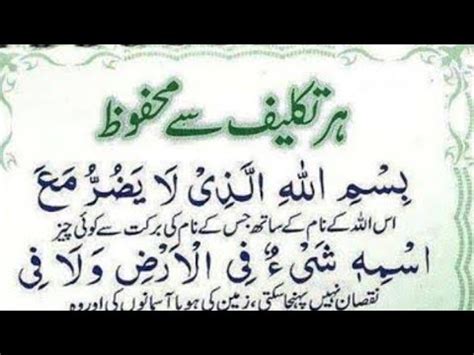 ہر تکلیف سے محفوظ
بِسْمِ اللهِ الَّذِىْ لَا يَضُرُّ مَعَ
اس اللہ کے نام کے ساتھ جس کے نام کی برکت سے کوئی چیز
اسْمِهٖ شَىْءٌ فِى الْاَرْضِ وَلَا فِى
نقصان نہیں پہنچا سکتی، زمین کی ہو یا آسمانوں کی اور وہ